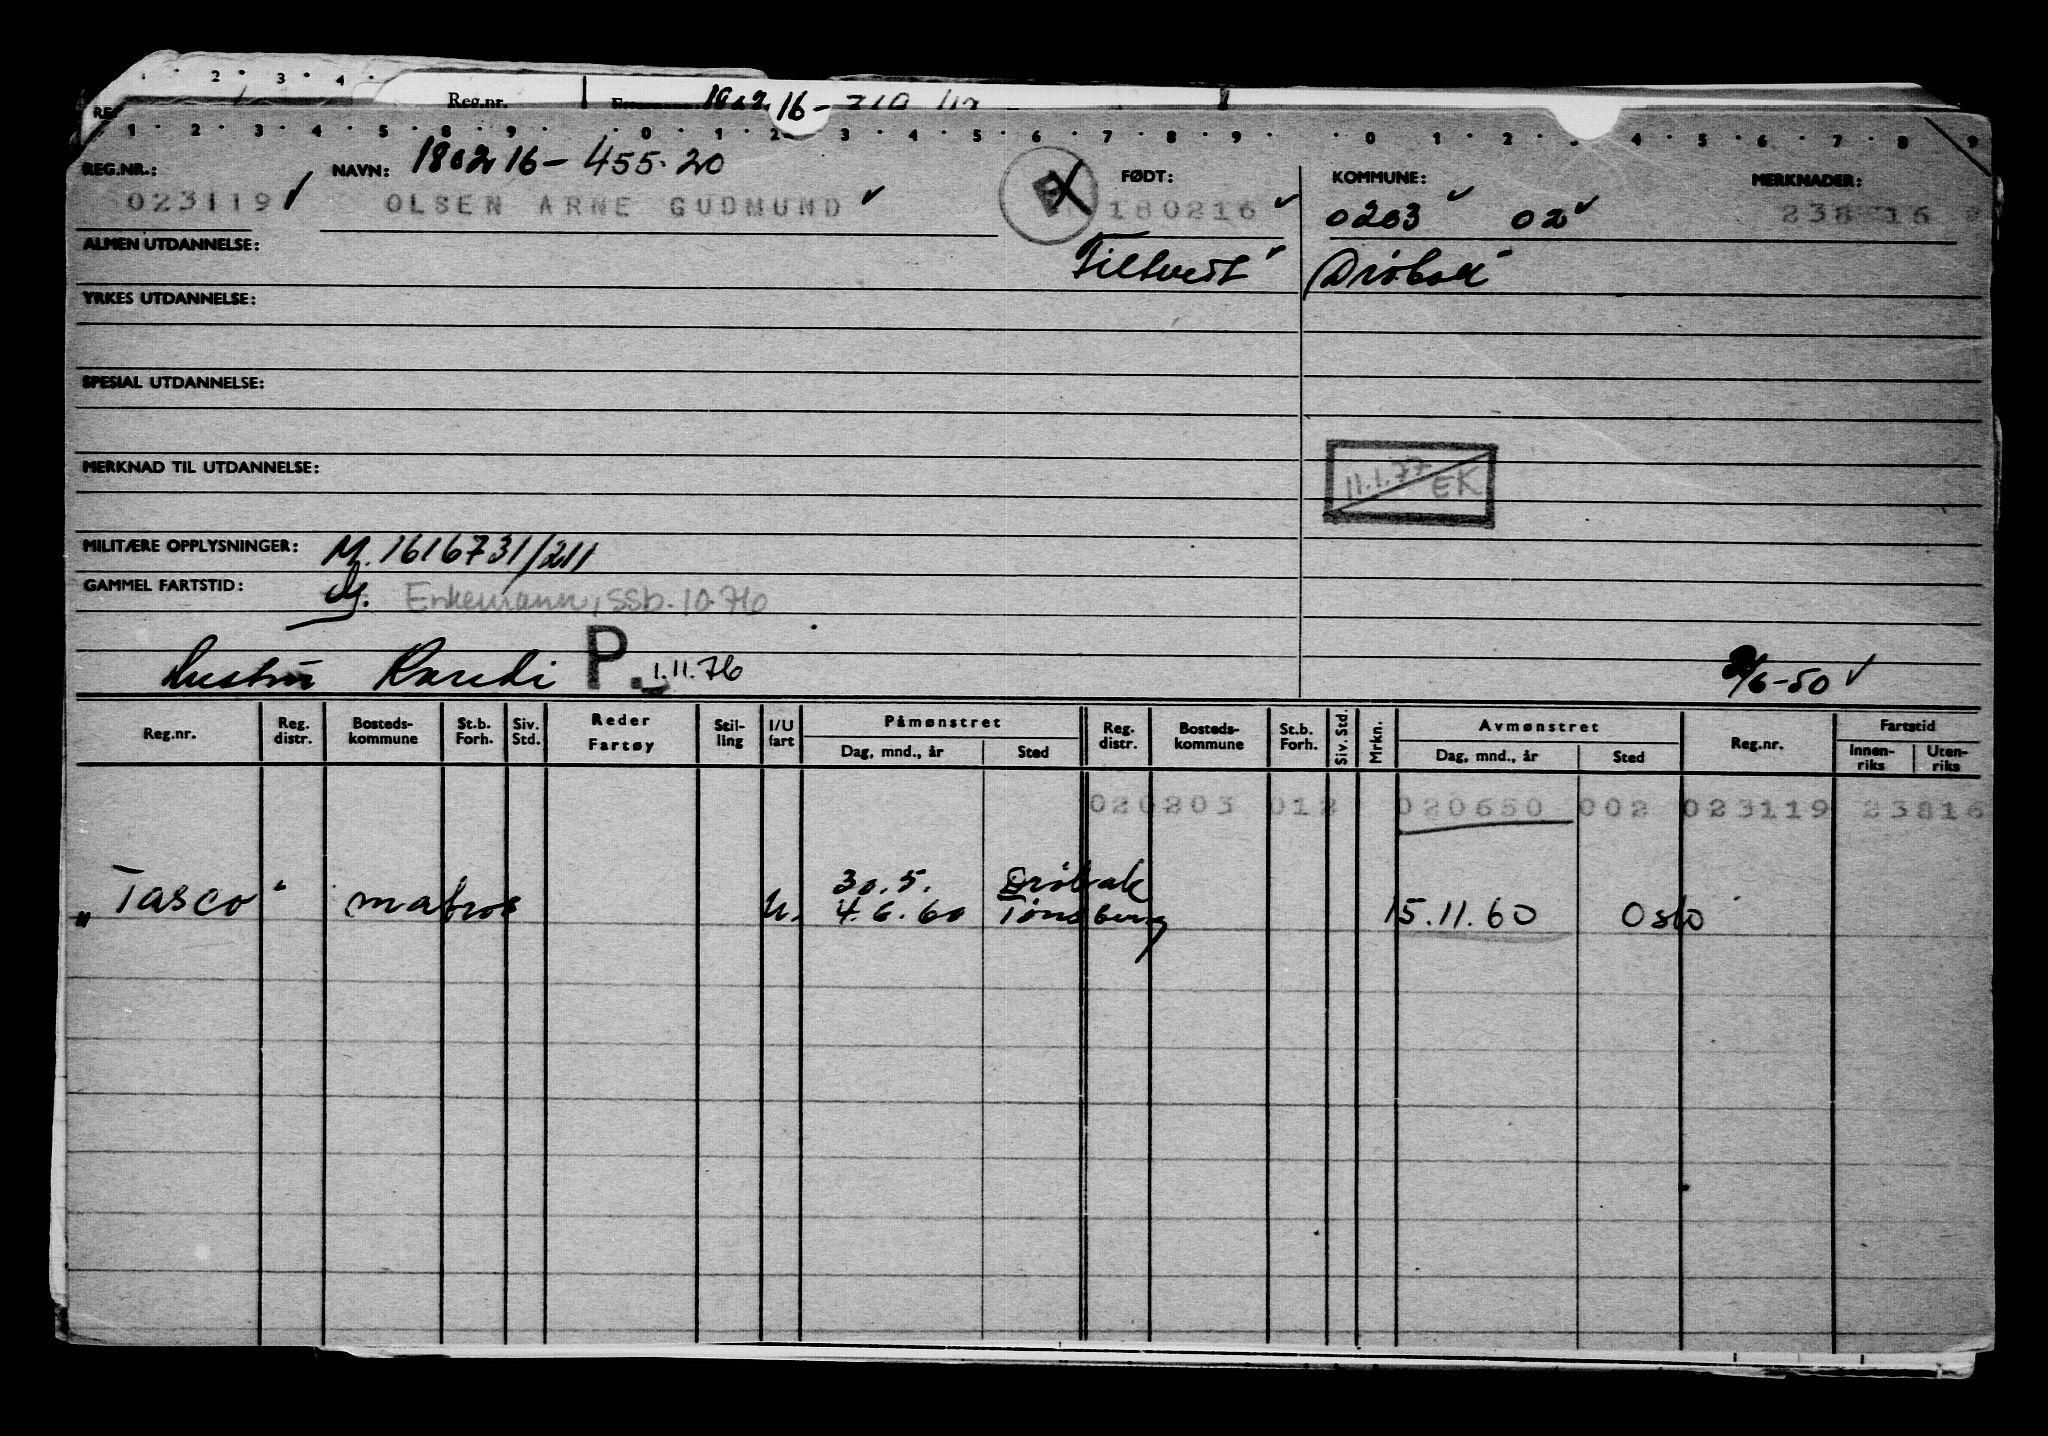 2 · 3 · 4 ·
Reg.nr. 180216-
RE
1 · 2 · 3 · 4 · 5 · 6 · 7 · 8 · 9 · · 0 · 1 · 2 · 3 · 4 · 5 · 6 · 7 · 8 · 9 · · 0 · 1 · 2 · 3 · 4 · 5 · 6 · 7 · 8 · 9
REG.NR.: NAVN: 180216-455.20 FØDT: KOMMUNE: MERKNADER:
023119 OLSEN ARNE GUDMUND 180216 0203 02 23816
ALMEN UTDANNELSE: Filtvedt Drøbak
YRKES UTDANNELSE:
SPESIAL UTDANNELSE:
MERKNAD TIL UTDANNELSE:
11.1.77 EK
MILITÆRE OPPLYSNINGER: M.1616731/211
GAMMEL FARTSTID: Enkemann, ssb. 10.76
Hustru Randi P. 1.11.76 2/6-50
Reg.nr. Reg. distr. Bosteds-kommune St.b. Forh. Siv. Std. Reder Fartøy Stil-ling I/U fart Påmønstret Dag, mnd., år Sted Reg. distr. Bosteds-kommune St.b. Forh. Siv. Std. Mrkn. Avmønstret Dag, mnd., år Sted Reg.nr. Fartstid Innen-riks Uten-riks
020203 012 020650 002 023119 23816
30.5. Drøbak
"Tasco" matros U. 4.6.60 Tønsberg 15.11.60 Oslo